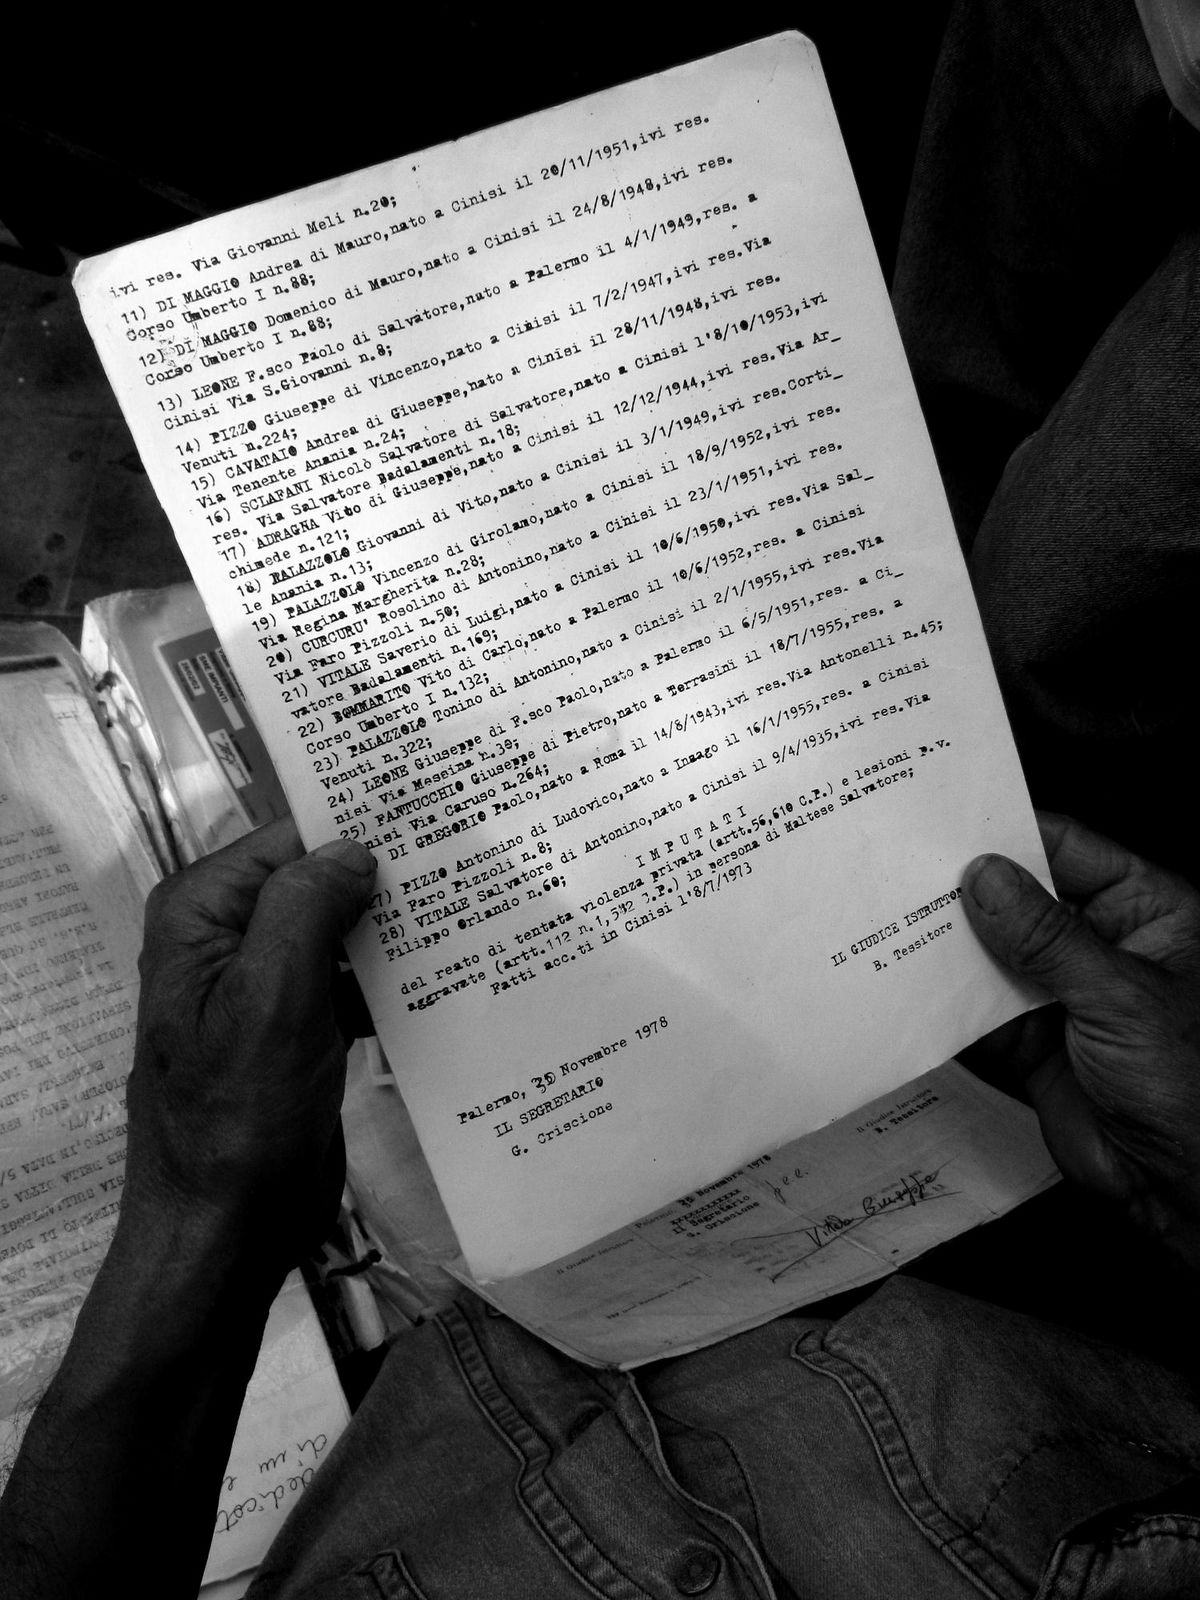 ivi res. Via Giovanni Meli n.20;
11) DI MAGGIO Andrea di Mauro,nato a Cinisi il 20/11/1951,ivi res.
Corso Umberto I n.88;
12) DI MAGGIO Domenico di Mauro,nato a Cinisi il 24/8/1948,ivi res.
Corso Umberto I n.88;
13) LEONE F.sco Paolo di Salvatore,nato a Palermo il 4/1/1949,res. a
Cinisi Via S.Giovanni n.8;
14) PIZZO Giuseppe di Vincenzo,nato a Cinisi il 7/2/1947,ivi res.Via
Venuti n.224;
15) CAVATAIO Andrea di Giuseppe,nato a Cinisi il 28/11/1948,ivi res.
Via Tenente Anania n.24;
16) SCLAFANI Nicolò Salvatore di Salvatore,nato a Cinisi l'8/10/1953,ivi
res. Via Salvatore Badalamenti n.18;
17) ADRAGNA Vito di Giuseppe,nato a Cinisi il 12/12/1944,ivi res.Via Ar_
chimede n.121;
18) PALAZZOLO Giovanni di Vito,nato a Cinisi il 3/1/1949,ivi res.Corti_
le Anania n.13;
19) PALAZZOLO Vincenzo di Girolamo,nato a Cinisi il 18/9/1952,ivi res.
Via Regina Margherita n.28;
20) CURCURU' Rosolino di Antonino,nato a Cinisi il 23/1/1951,ivi res.
Via Faro Pizzoli n.50;
21) VITALE Saverio di Luigi,nato a Cinisi il 10/6/1950,ivi res.Via Sal_
vatore Badalamenti n.169;
22) BOMMARITO Vito di Carlo,nato a Palermo il 10/6/1952,res. a Cinisi
Corso Umberto I n.132;
23) PALAZZOLO Tonino di Antonino,nato a Cinisi il 2/1/1955,ivi res.Via
Venuti n.322;
24) LEONE Giuseppe di F.sco Paolo,nato a Palermo il 6/5/1951,res. a Ci_
nisi Via Messina n.39;
25) FANTUCCHIO Giuseppe di Pietro,nato a Terrasini il 18/7/1955,res. a
nisi Via Caruso n.264;
DI GREGORIO Paolo,nato a Roma il 14/8/1943,ivi res.Via Antonelli n.45;
27) PIZZO Antonino di Ludovico,nato a Inzago il 16/1/1955,res. a Cinisi
Via Faro Pizzoli n.8;
28) VITALE Salvatore di Antonino,nato a Cinisi il 9/4/1935,ivi res.Via
Filippo Orlando n.60;
I M P U T A T I
del reato di tentata violenza privata (artt.56,610 C.P.) e lesioni p.v.
aggravate (artt.112 n.1,582 C.P.) in persona di Maltese Salvatore;
Fatti acc.ti in Cinisi l'8/7/1973
IL GIUDICE ISTRUTTO
B. Tessitore
Palermo, 25 Novembre 1978
IL SEGRETARIO
G. Criscione
Il Giudice Istruttore
B. Tessitore
Palermo 25 Novembre 1978
xxxxxxxxxxx
Il Segretario
G. Criscione
Il Giudice Istruttore
Vitale Giuseppe